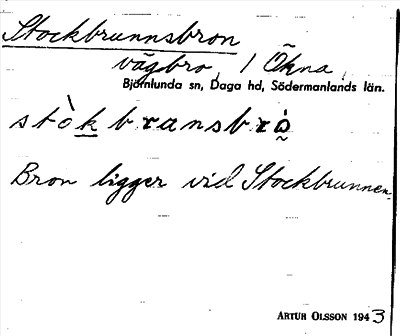 Stockbrunnsbron
vägbro / Ökna
Björnlunda sn, Daga hd, Södermanlands län.
stòkbransbrò̰
Bron ligger vid Stockbrunnen.
ARTUR OLSSON 1943